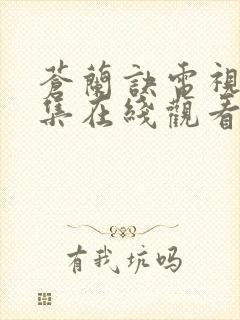 蒼蘭訣電視
集在綫觀看
有我坑吗